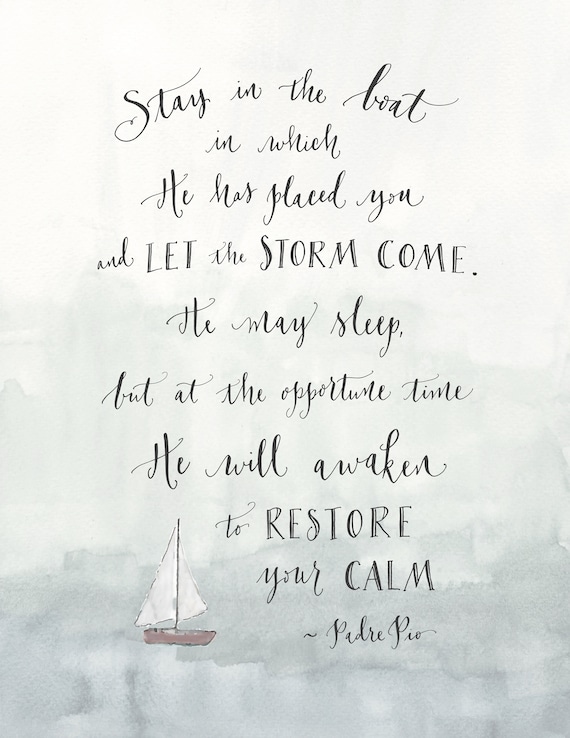 Stay in the boat
in which
He has placed you
and LET the STORM COME.
He may sleep,
but at the opportune time
He will awaken
to RESTORE
your CALM
~ Padre Pio